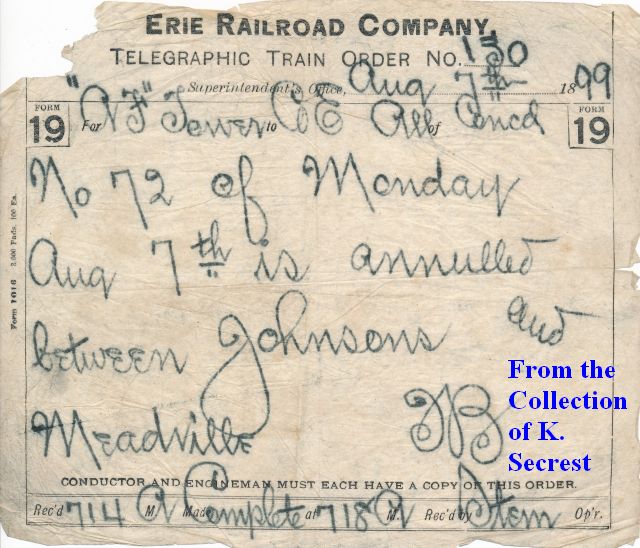 ERIE RAILROAD COMPANY.
TELEGRAPHIC TRAIN ORDER No. 150
Superintendent's Office, Aug 7th 1899
FORM 19
For "NF" Tower to C&E All of Concd
FORM 19
No 72 of Monday
Aug 7th is annulled
between Johnsons and
Meadville
JB
CONDUCTOR AND ENGINEMAN MUST EACH HAVE A COPY OF THIS ORDER.
Rec'd 714 A M. Made Complete at 718 A M. Rec'd by Stem Op'r.
Form 1016 2,000 Pads. 100 Ea.
From the
Collection
of K.
Secrest